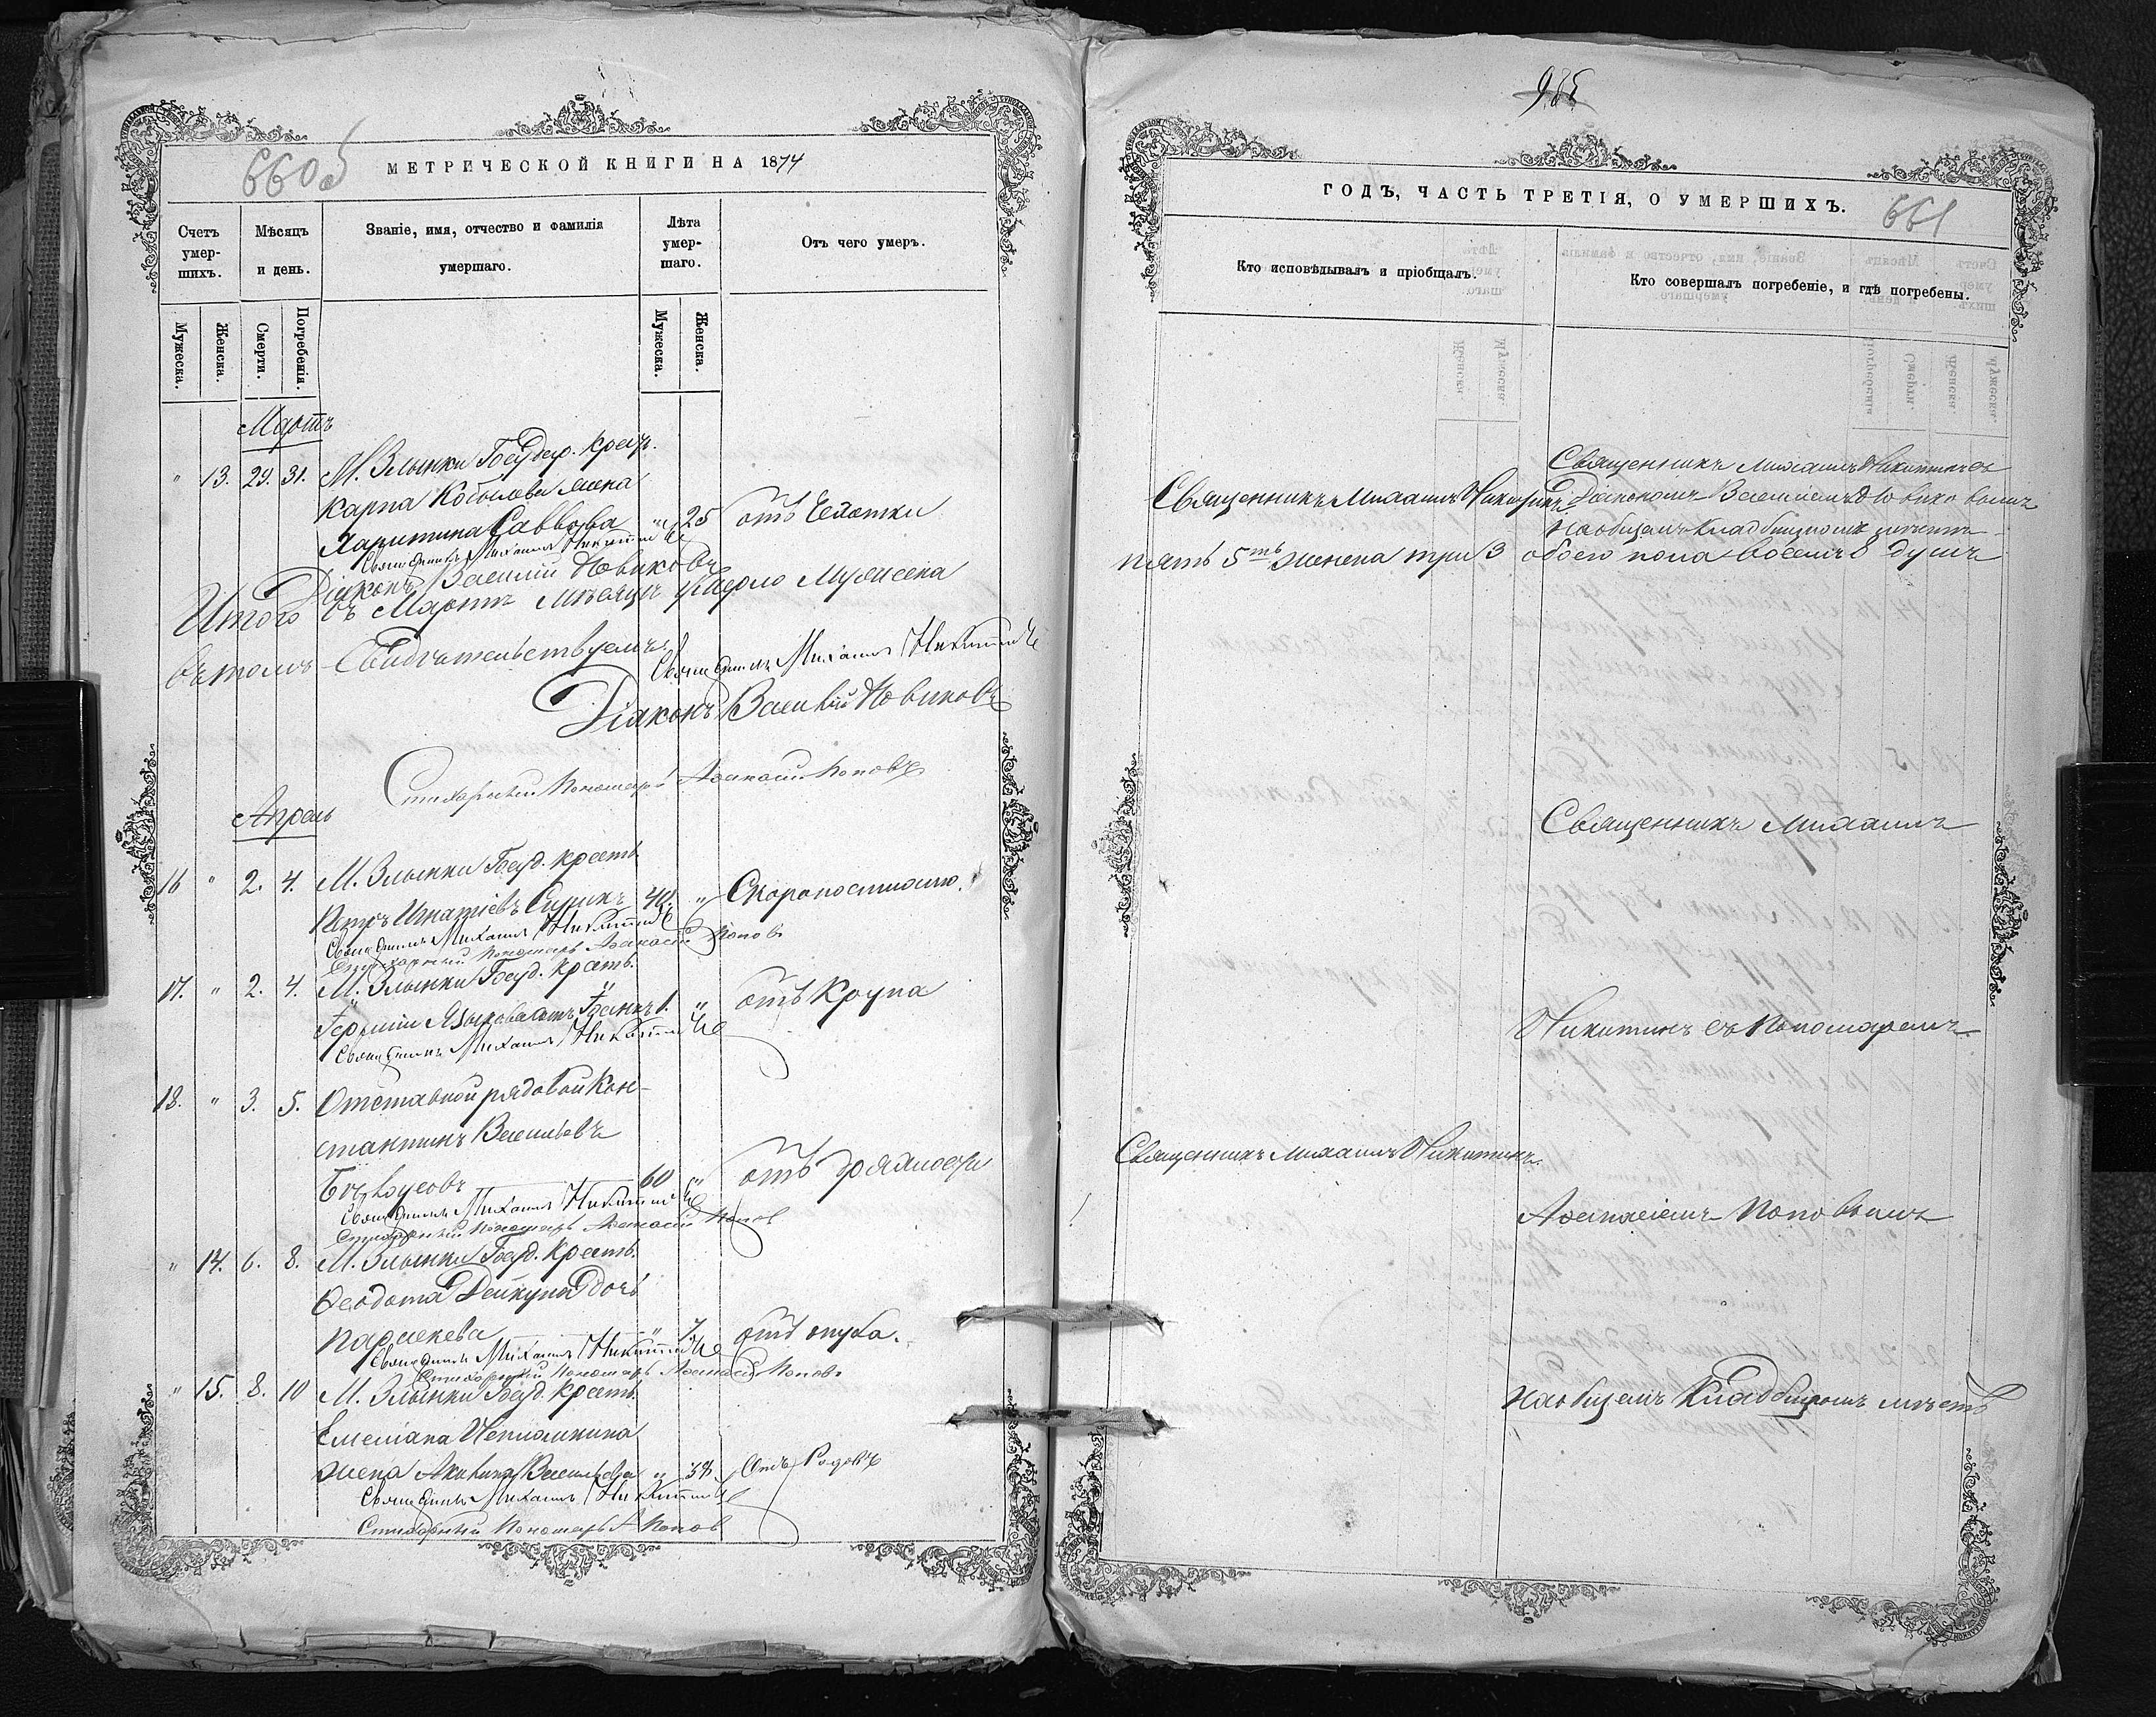 660б
МЕТРИЧЕСКОЙ КНИГИ НА 1874
Счетъ умер-шихъ.
Мѣсяцъ и день.
Званіе, имя, отчество и фамилія умершаго.
Лѣта умер-шаго.
Отъ чего умеръ.
Мужеска.
Женска.
Смерти.
Погребенія.
Мужеска.
Женска.
Мартъ
" 13. 29. 31. М. Злынки Государ. крест.
Карпа Кобылева жена
Харитина Саввова " 25 отъ Чахотки
Священникъ Михаилъ Никитинъ
Діаконъ Василий Новиковъ
Итого въ Мартѣ мѣсяцѣ умерло мужеска
въ томъ свидѣтельствуемъ:
Священникъ Михаилъ Никитинъ
Діаконъ Василій Новиковъ
Стихарный Пономарь Афанасій Поповъ
Апрель
16 " 2. 4. М. Злынки Госуд. крестъ.
Петръ Игнатіевъ 40. " Скоропостижно.
Священникъ Михаилъ Никитинъ
Стихарный Пономарь Афанасій Попов
17. " 2. 4. М. Злынки Госуд. крестъ.
1. " отъ Крупа
Священникъ Михаилъ Никитинъ
18. " 3. 5. Отставной рядовой Кон-
стантинъ Васильевъ
Бѣлоусовъ 60 " отъ дряхлости
Священникъ Михаилъ Никитинъ
Стихарный Пономарь Афанасій Попов
" 14. 6. 8. М. Злынки Госуд. крестъ.
Феодота дочь
Параскева " 7. отъ опуха.
Священникъ Михаилъ Никитинъ
Стихарный Пономарь Афанасій Попов
" 15. 8. 10 М. Злынки Госуд. крестъ.
Емеліана
жена Акилина Васильева " 38. Отъ Родовъ
Священникъ Михаилъ Никитинъ
Стихарный Пономарь А Попов
965
ГОДЪ, ЧАСТЬ ТРЕТІЯ, О УМЕРШИХЪ.
661
Кто исповѣдывалъ и пріобщалъ.
Кто совершалъ погребеніе, и гдѣ погребены.
Священникъ Михаилъ Никитинъ съ
Священникъ Михаилъ Никитинъ Діакономъ Василіемъ Новиковымъ
на общемъ кладбищномъ мѣстѣ
пять 5ть женска три 3 обоего пола восемь 8 душъ
Священникъ Михаилъ
Никитинъ съ Пономаремъ
Священникъ Михаилъ Никитинъ.
Афанасіемъ Поповымъ
на общемъ Кладбищномъ мѣстѣ